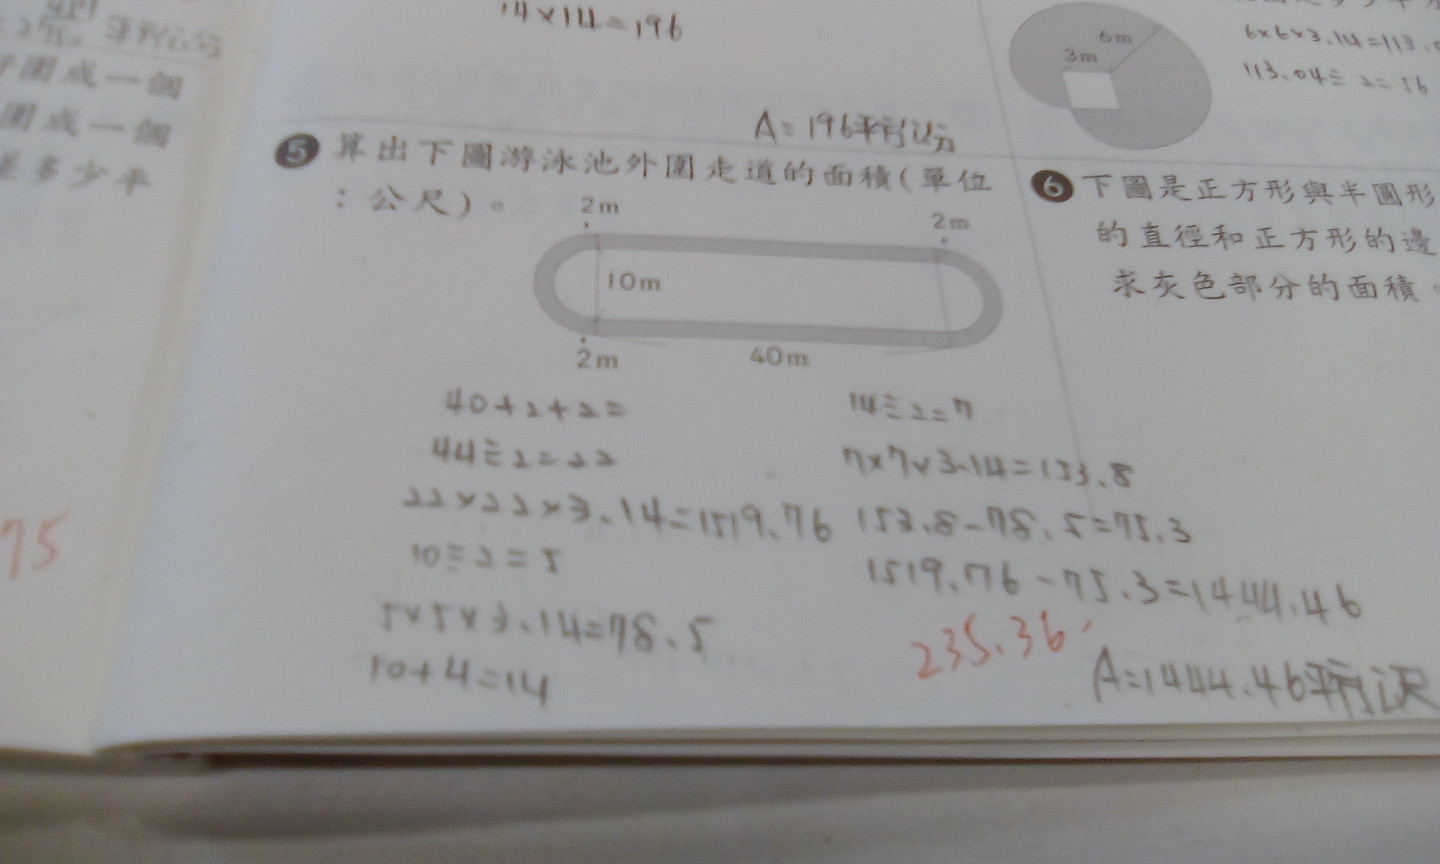 平方公分
圍成一個
圍成一個
差多少平
75
14×14=196
A=196平方公分
6m
3m
6×6×3.14=113.0
113.04÷2=56
5 算出下圖游泳池外圍走道的面積(單位
:公尺)。
2m
2m
10m
2m
40m
40+2+2=
44÷2=22
22×22×3.14=1519.76
10÷2=5
5×5×3.14=78.5
10+4=14
14÷2=7
7×7×3.14=153.8
153.8-78.5=75.3
1519.76-75.3=1444.46
235.36
A=1444.46平方公尺
6 下圖是正方形與半圓形
的直徑和正方形的邊
求灰色部分的面積。